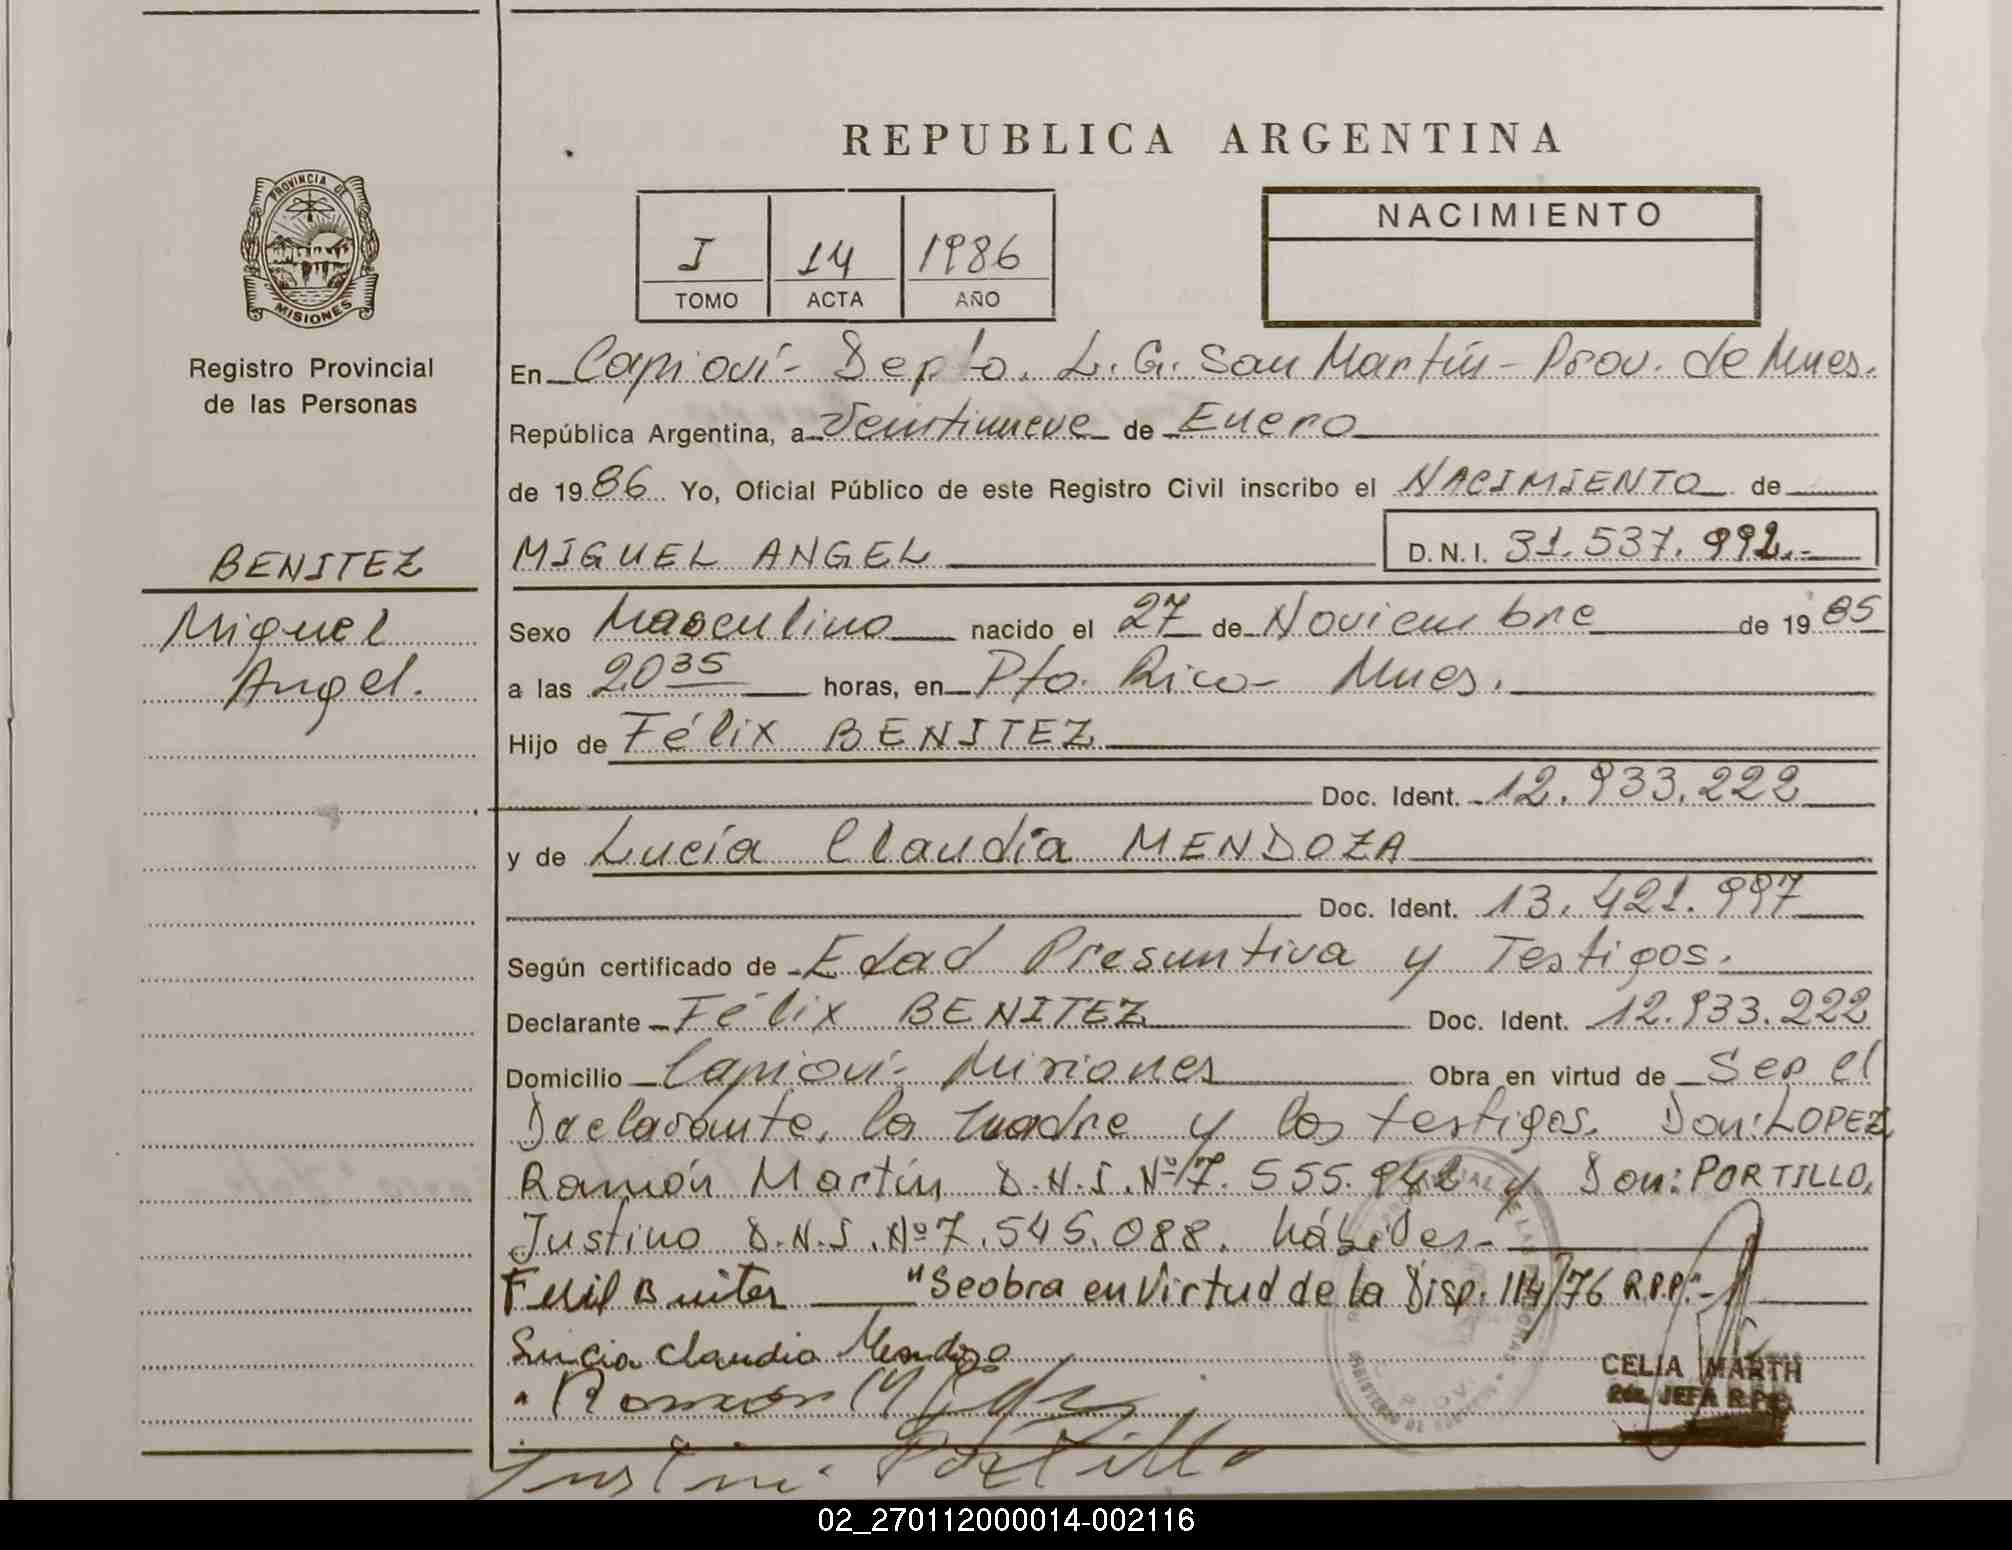 REPUBLICA ARGENTINA
PROVINCIA DE
MISIONES
Registro Provincial
de las Personas
BENITEZ
Miguel
Angel.
I 14 1986
TOMO ACTA AÑO
NACIMIENTO
En Capioví - Depto. L. G. San Martín - Prov. de Mnes.
República Argentina, a Veintinueve de Enero
de 1986 Yo, Oficial Público de este Registro Civil inscribo el NACIMIENTO de
MIGUEL ANGEL D.N.I. 31.537.992.-
Sexo Masculino nacido el 27 de Noviembre de 1985
a las 20 35 horas, en Pto. Rico - Mnes.
Hijo de Félix BENITEZ
Doc. Ident. 12.933.222
y de Lucía Claudia MENDOZA
Doc. Ident. 13.421.997
Según certificado de Edad Presuntiva y Testigos.
Declarante Félix BENITEZ Doc. Ident. 12.933.222
Domicilio Capioví - Misiones Obra en virtud de Ser el
Declarante, la madre y los testigos. Don: LOPEZ
Ramón Martín D.N.I. Nº 7.555.942 y Don: PORTILLO,
Justino D.N.I. Nº 7.545.088. hábiles.-
"Se obra en Virtud de la Disp. 114/76 R.P.P."-
Lucia Claudia Mendoza
CELIA MARTH
JEFA R.P.P.
Ramon
Justino Portillo
02_270112000014-002116